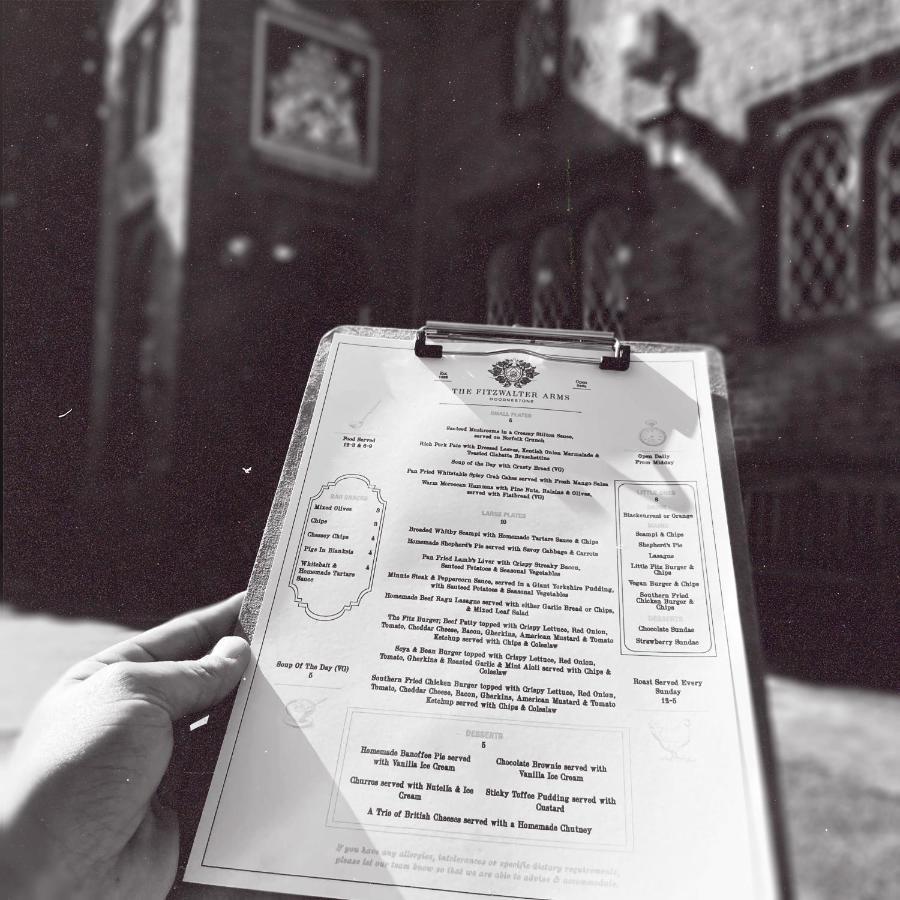 Est.
Open
THE FITZWALTER ARMS
GOODNESTONE
Food Served
12-3 & 6-9
BAR SNACKS
Mixed Olives 3
Chips 3
Cheesey Chips 4
Pigs In Blankets 4
Whitebait & 4
Homemade Tartare
Sauce
Soup Of The Day (VG)
5
SMALL PLATES
6
Sauteed Mushrooms in a Creamy Stilton Sauce,
served on Norfolk Crunch
Rich Pork Pate with Dressed Leaves, Kentish Onion Marmalade &
Toasted Ciabatta Bruschettine
Soup of the Day with Crusty Bread (VG)
Pan Fried Whitstable Spicy Crab Cakes served with Fresh Mango Salsa
Warm Moroccan Hummus with Pine Nuts, Raisins & Olives,
served with Flatbread (VG)
LARGE PLATES
10
Breaded Whitby Scampi with Homemade Tartare Sauce & Chips
Homemade Shepherd's Pie served with Savoy Cabbage & Carrots
Pan Fried Lamb's Liver with Crispy Streaky Bacon,
Sauteed Potatoes & Seasonal Vegetables
Minute Steak & Peppercorn Sauce, served in a Giant Yorkshire Pudding,
with Sauteed Potatoes & Seasonal Vegetables
Homemade Beef Ragu Lasagne served with either Garlic Bread or Chips,
& Mixed Leaf Salad
The Fitz Burger; Beef Patty topped with Crispy Lettuce, Red Onion,
Tomato, Cheddar Cheese, Bacon, Gherkins, American Mustard & Tomato
Ketchup served with Chips & Coleslaw
Soya & Bean Burger topped with Crispy Lettuce, Red Onion,
Tomato, Gherkins & Roasted Garlic & Mint Aioli served with Chips &
Coleslaw
Southern Fried Chicken Burger topped with Crispy Lettuce, Red Onion,
Tomato, Cheddar Cheese, Bacon, Gherkins, American Mustard & Tomato
Ketchup served with Chips & Coleslaw
Open Daily
From Midday
LITTLE ONES
6
Blackcurrant or Orange
MAINS
Scampi & Chips
Shepherd's Pie
Lasagne
Little Fitz Burger &
Chips
Vegan Burger & Chips
Southern Fried
Chicken Burger &
Chips
DESSERTS
Chocolate Sundae
Strawberry Sundae
Roast Served Every
Sunday
12-5
DESSERTS
5
Homemade Banoffee Pie served
with Vanilla Ice Cream
Chocolate Brownie served with
Vanilla Ice Cream
Churros served with Nutella & Ice
Cream
Sticky Toffee Pudding served with
Custard
A Trio of British Cheeses served with a Homemade Chutney
If you have any allergies, intolerances or specific dietary requirements,
please let our team know so that we are able to advise & accommodate.